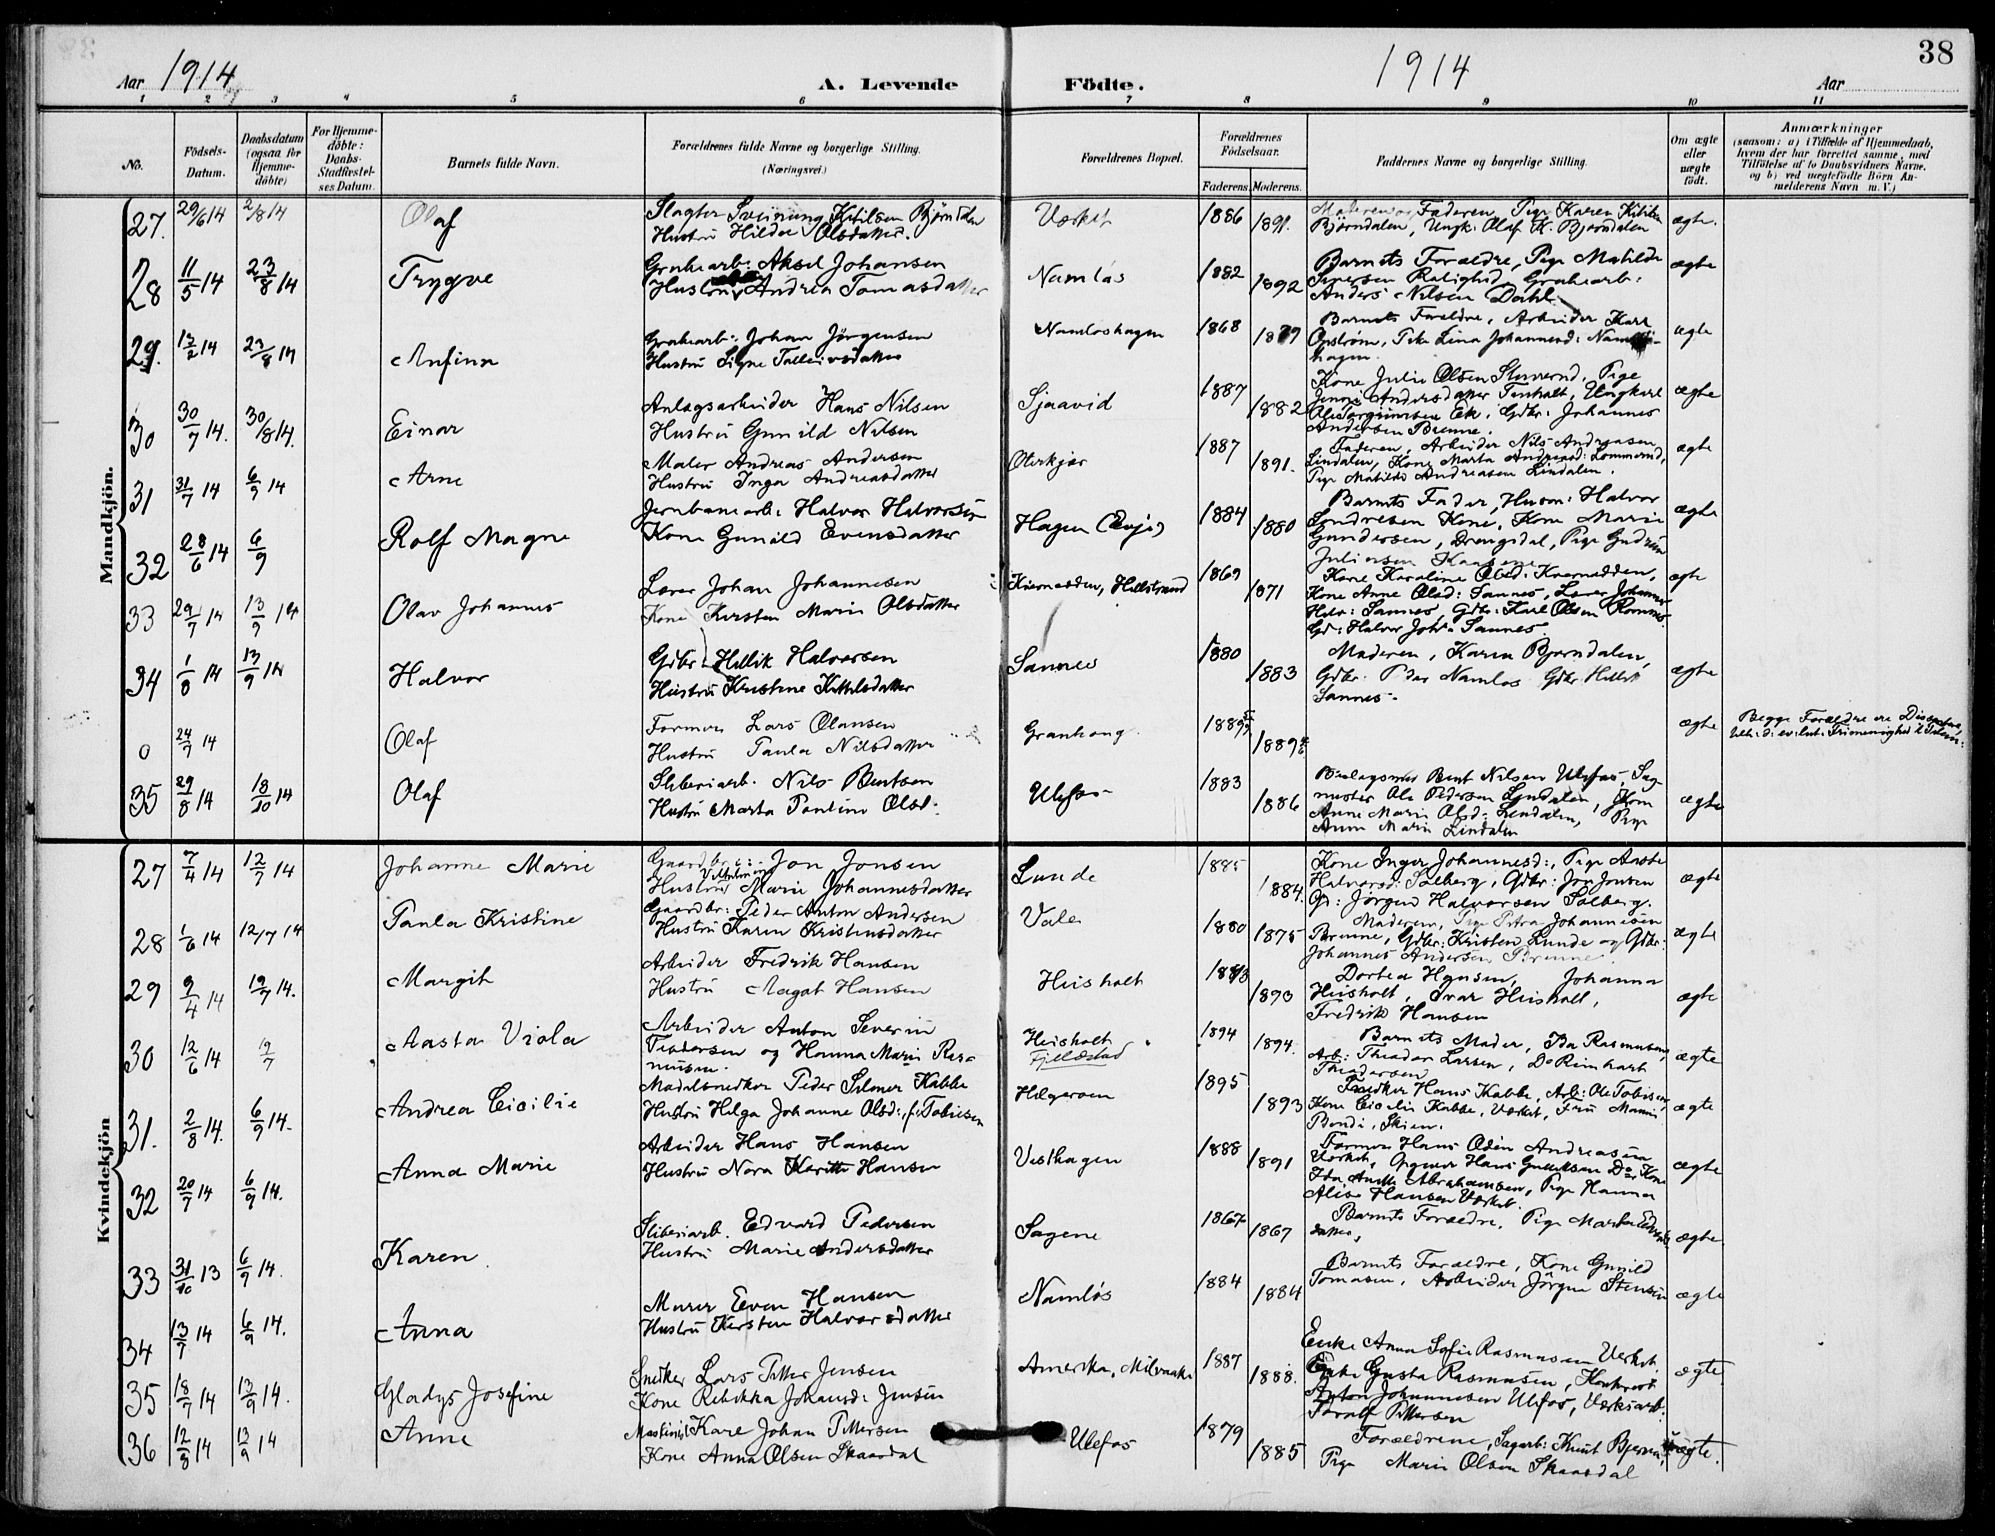 Aar 1914
A. Levende Födte.
1914
Aar
38
1 2 3 4 5 6 7 8 9 10 11
No.
Födsels-Datum.
Daabsdatum (ogsaa for Hjemme-döbte)
For Hjemme-döbte: Daabs-Stadfæstel-ses Datum.
Barnets fulde Navn.
Forældrenes fulde Navne og borgerlige Stilling. (Næringsvei.)
Forældrenes Bopæl.
Forældrenes Födselsaar.
Faderens. Moderens.
Faddernes Navne og borgerlige Stilling.
Om ægte eller uægte födt.
Anmærkninger
(saasom: a) i Tilfælde af Hjemmedaab,
hvem der har forrettet samme, med
Tilföielse af to Daabsvidners Navne.
og b) ved uægtefödte Börn An-
melderens Navn m. V.)
Mandkjön.
27. 29/6 14 2/8 14 Olaf
Slagter Sveinung Kittilsen Bjørndalen
Hustru Hilda Olsdatter.
Værket 1886 1891.
Moderen og Faderen, Pige Karen Kittilsen
Bjørndalen, Ungk: Olaf K. Bjørndalen
ægte.
28 11/5 14 23/8 14 Trygve
Grubearb: Aksel Johansen
Hustru Andrea Tomasdatter
Namløs 1882 1892
Barnets Forældre, Pige Matilde
Iversen Rolighed, Grubearb:
Anders Nilsen Dahl
ægte
29. 13/2 14 23/8 14 Anfinn
Grubearb: Johan Jörgensen
Hustru Signe Talleivsdatter
Namløshagen 1868 1879
Barnets Forældre, Arbeider Karl
Opstrøm, Pike Lina Johannesd: Namløs-
hagen.
ægte
30 30/7 14. 30/8 14. Einar
Anlægsarbeider Hans Nilsen
Hustru Gunild Nilsen
Sjaavid 1887 1882
Kone Julie Olsen Pige
Jenny Andersdatter Tinholt, Ungkarl
Ole Torgrimsen Eik, Gdbr: Johannes
Andersen Brenne.
ægte
31 31/7 14 6/9 14 Arne
Maler Andreas Andersen
Hustru Inga Andreasdatter
Oterkjær 1887 1891.
Faderen, Arbeider Nils Andreasen
Lindalen, Kone Marta Andreasd:
Pige Matilde Andreasen Lindalen.
ægte
32 28/6 14 6/9 Rolf Magne
Jernbanearb: Halvor Halvorsen
Kone Gunild Evensdatter
Hagen (Evje) 1884 1880
Barnets Fader, Husm: Halvor
Sondresen Kone, Kone Marie
Gundersen, Drangsdal, Pige Gudrun
Juliusen Kaasene
ægte
33 29/7 14 13/9 14 Olav Johannes
Lærer Johan Johannesen
Kone Kirsten Marie Olsdatter
Kværnodden, Hellestrand 1869 1871
Kone Karoline Olsd: Kværnodden,
Kone Anne Olsd: Sannes, Lærer Johannes
Halv: Sannes, Gdbr: Karl Olsen Romnes
Gd: Halvor Joh: Sannes.
ægte
34 1/8 14 13/9 14 Halvor
Gdbr: Hellik Halvorsen
Hustru Kristine Kittilsdatter
Sannes 1880 1883
Moderen, Karen Bjørndalen,
Gdbr: Peder Namløs Gdbr Hellik
Sannes.
ægte
0 24/7 14 Olaf
Former Lars Olausen
Hustru Paula Nilsdatter
Granhaug 1889 1889
ægte
Begge Forældre ere Dissentere,
35 29/8 14 18/10 14 Olaf
Sliberiarb. Nils Bentsen
Hustru Marta Pauline Olsd.
Ulefos 1883 1886
Brugsmed Bent Nilsen Ulefos, Sag-
mester Ole Pedersen Lindalen, Kone
Anne Marie Olsd: Lindalen, Pige
Anne Marie Lindalen
ægte
Kvindekjön
27 7/4 14 12/7 14 Johanne Marie
Gaardbr: Jon Jonsen
Hustru Marie Johannesdatter
Lunde 1885 1884.
Kone Inger Johannesd:, Pige Aaste
Halvorsd: Solberg, Gdbr: Jon Jonsen
Gd: Jørgen Halvorsen Solberg.
ægte
28 1/6 14 12/7 14 Paula Kristine
Gaardbr: Peder Anton Andersen
Hustru Karen Kristensdatter
Vale 1880 1875
Moderen, Pige Petra Johannesen
Brenne, Gdbr: Kristen Lunde og Gdbr:
Johannes Andersen Brenne.
ægte
29 9/4 14 19/7 14. Margit
Arbeider Fredrik Hansen
Hustru Magot Hansen
Heisholt 1883 1893
Dortea Hansen, Johanna
Heisholt, Ivar Heisholt,
Fredrik Hansen
ægte
30 12/6 14 19/7 Aasta Viola
Arbeider Anton Severin
Teodorsen og Hanna Marie Ras-
mussen.
Heisholt
1894 1894.
Barnets Moder, Ida Rasmussen,
Arb: Theodor Larsen, Do Reinhart
Theodorsen
ægte
31. 2/8 14. 6/9 14. Andrea Cicilie
Modelsnedker Peder Selmer Kabbe
Hustru Helga Johanne Olsd: f: Tobiesen
Hægeroen 1895 1893
Snedker Hans Kabbe, Arb: Ole Tobiesen,
Kone Cicilie Kabbe, Værket, Frü
Bondi, Skien.
ægte
32 20/7 14 6/9 14. Anna Marie
Arbeider Hans Hansen
Hustru Nora Karitte Hansen
Vesthagen 1888 1891
Former Hans Odin Andreasen
Værket, Opsyner Hans Gulliksen Do Kone
Ida Anette Abrahamsen, Pige Hanna
Alise Hansen Værket.
ægte
33 31/10 13 6/9 14. Karen
Sliberiarb. Edvard Pedersen
Hustru Marie Andersdatter
Sagene 1867 1867
Barnets Forældre, Pige Marta
datter,
ægte
34 13/7 14 6/9 14. Anna
Murer Even Hansen
Hustru Kirsten Halvorsdatter
Namløs 1884 1884
Barnets Forældre, Kone Gunild
Tomasen, Arbeider Jörgen Stensen
ægte
35 18/7 14 13/9 14. Gladys Josefine
Snedker Lars Petter Jensen
Kone Rebekka Johansd: Jensen
Amerika, Milvaaki 1887 1888.
Enke Anna Sofie Rasmusen Værket.
Enke Gusta Rasmusen,
Anton Johannesen Ulefos, Værksarb:
Toralf Pettersen
ægte
36 12/8 14 13/9 14 Anne
Maskinist Karl Johan Pettersen
Kone Anna Olsen Skaardal
Ulefos 1879 1885
Forældrene, Sagarb: Knut Bjerva,
Pige Marie Olsen Skaardal
ægte.